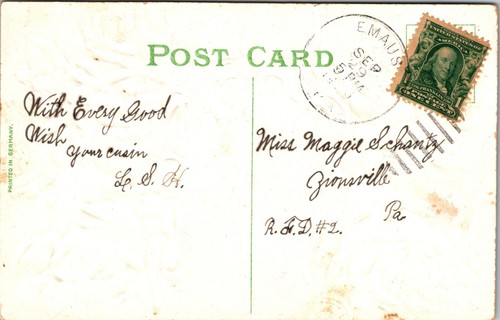 POST CARD
EMAUS
SEP
29
9 PM
With Every Good
Wish
your cusin
L. S. H.
Miss Maggie Schantz
Zionsville
Pa
R.F.D. #2.
PRINTED IN GERMANY.